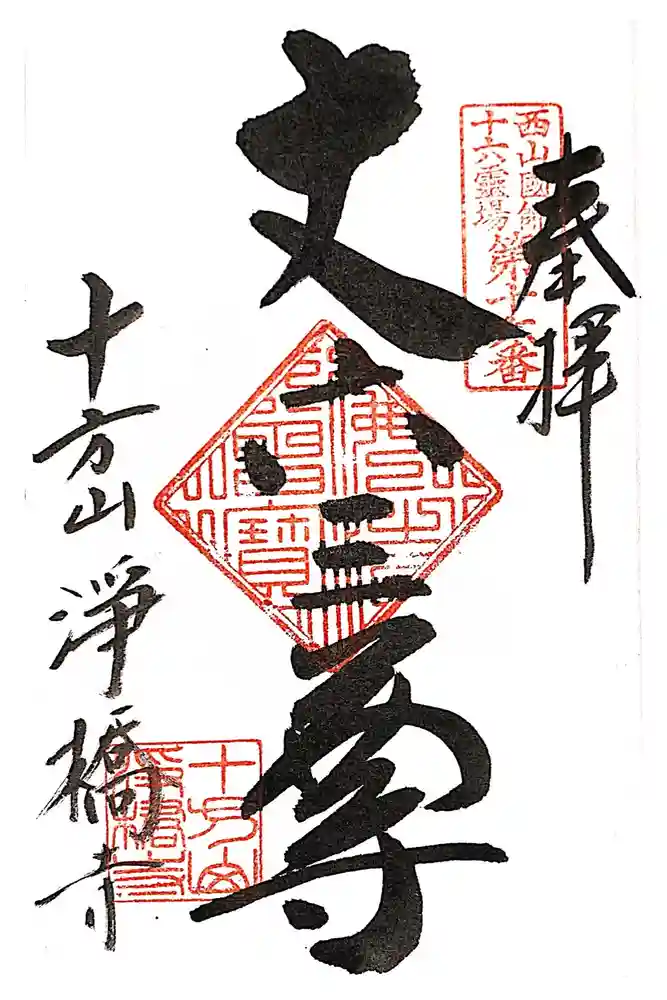 奉拝
西山國師
十六靈場第十二番
丈六三尊
佛法僧寶
十方山淨橋寺
十方山
淨橋寺